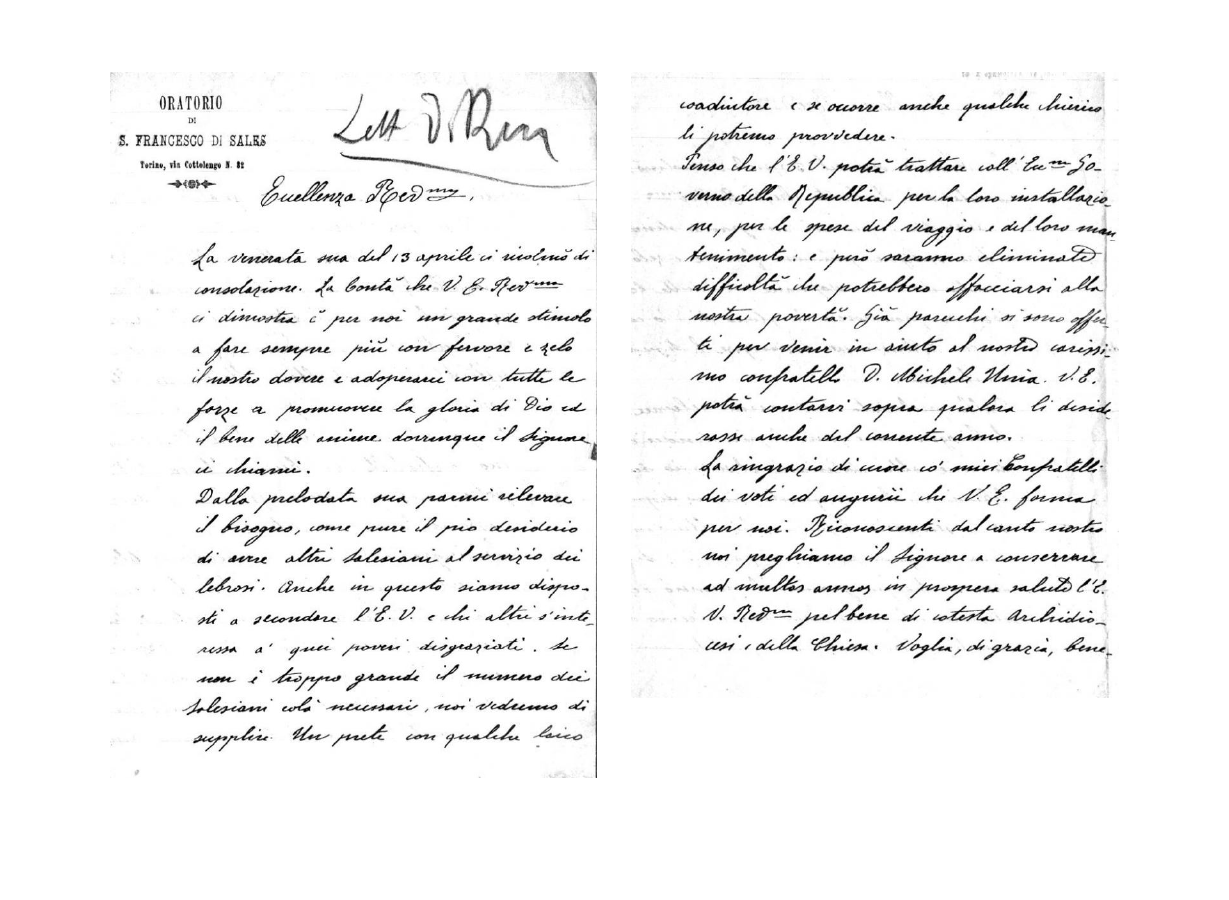 ORATORIO
DI
S. FRANCESCO DI SALES
Torino, via Cottolengo N. 32
Lett D. Rua
Eccellenza Revᵐᵃ,
La venerata sua del 13 aprile ci ricolmò di
consolazione. La bontà che V. E. Revᵐᵃ
ci dimostra è per noi un grande stimolo
a fare sempre più con fervore e zelo
il nostro dovere e adoperarci con tutte le
forze a promuovere la gloria di Dio ed
il bene delle anime dovunque il Signore
ci chiami.
Dalla prelodata sua parmi rilevare
il bisogno, come pure il pio desiderio
di avere altri Salesiani al servizio dei
lebrosi. Anche in questo siamo dispo-
sti a secondare l'E. V. e chi altri s'inte-
ressa a' quei poveri disgraziati. Se
non è troppo grande il numero dei
Salesiani colà necessarii, noi vedremo di
supplire. Un prete con qualche laico
coadiutore e se occorre anche qualche chierico
li potremo provvedere.
Penso che l'E. V. potrà trattare coll' Eccᵐᵒ Go-
verno della Republica per la loro installazio-
ne, per le spese del viaggio e del loro man-
tenimento: e però saranno eliminate
difficoltà che potrebbero affacciarsi alla
nostra povertà. Già parecchi si sono offer-
ti per venir in aiuto al nostro carissi-
mo confratello D. Michele Unia. V. E.
potrà contarvi sopra qualora li deside
rasse anche del corrente anno.
La ringrazio di cuore co' miei Confratelli
dei voti ed augurii che V. E. forma
per noi. Riconoscenti dal canto nostro
noi preghiamo il Signore a conservare
ad multos annos in prospera salute l'E.
V. Revᵐᵃ pel bene di cotesta Archidio-
cesi, e della Chiesa. Voglia, di grazia, bene-